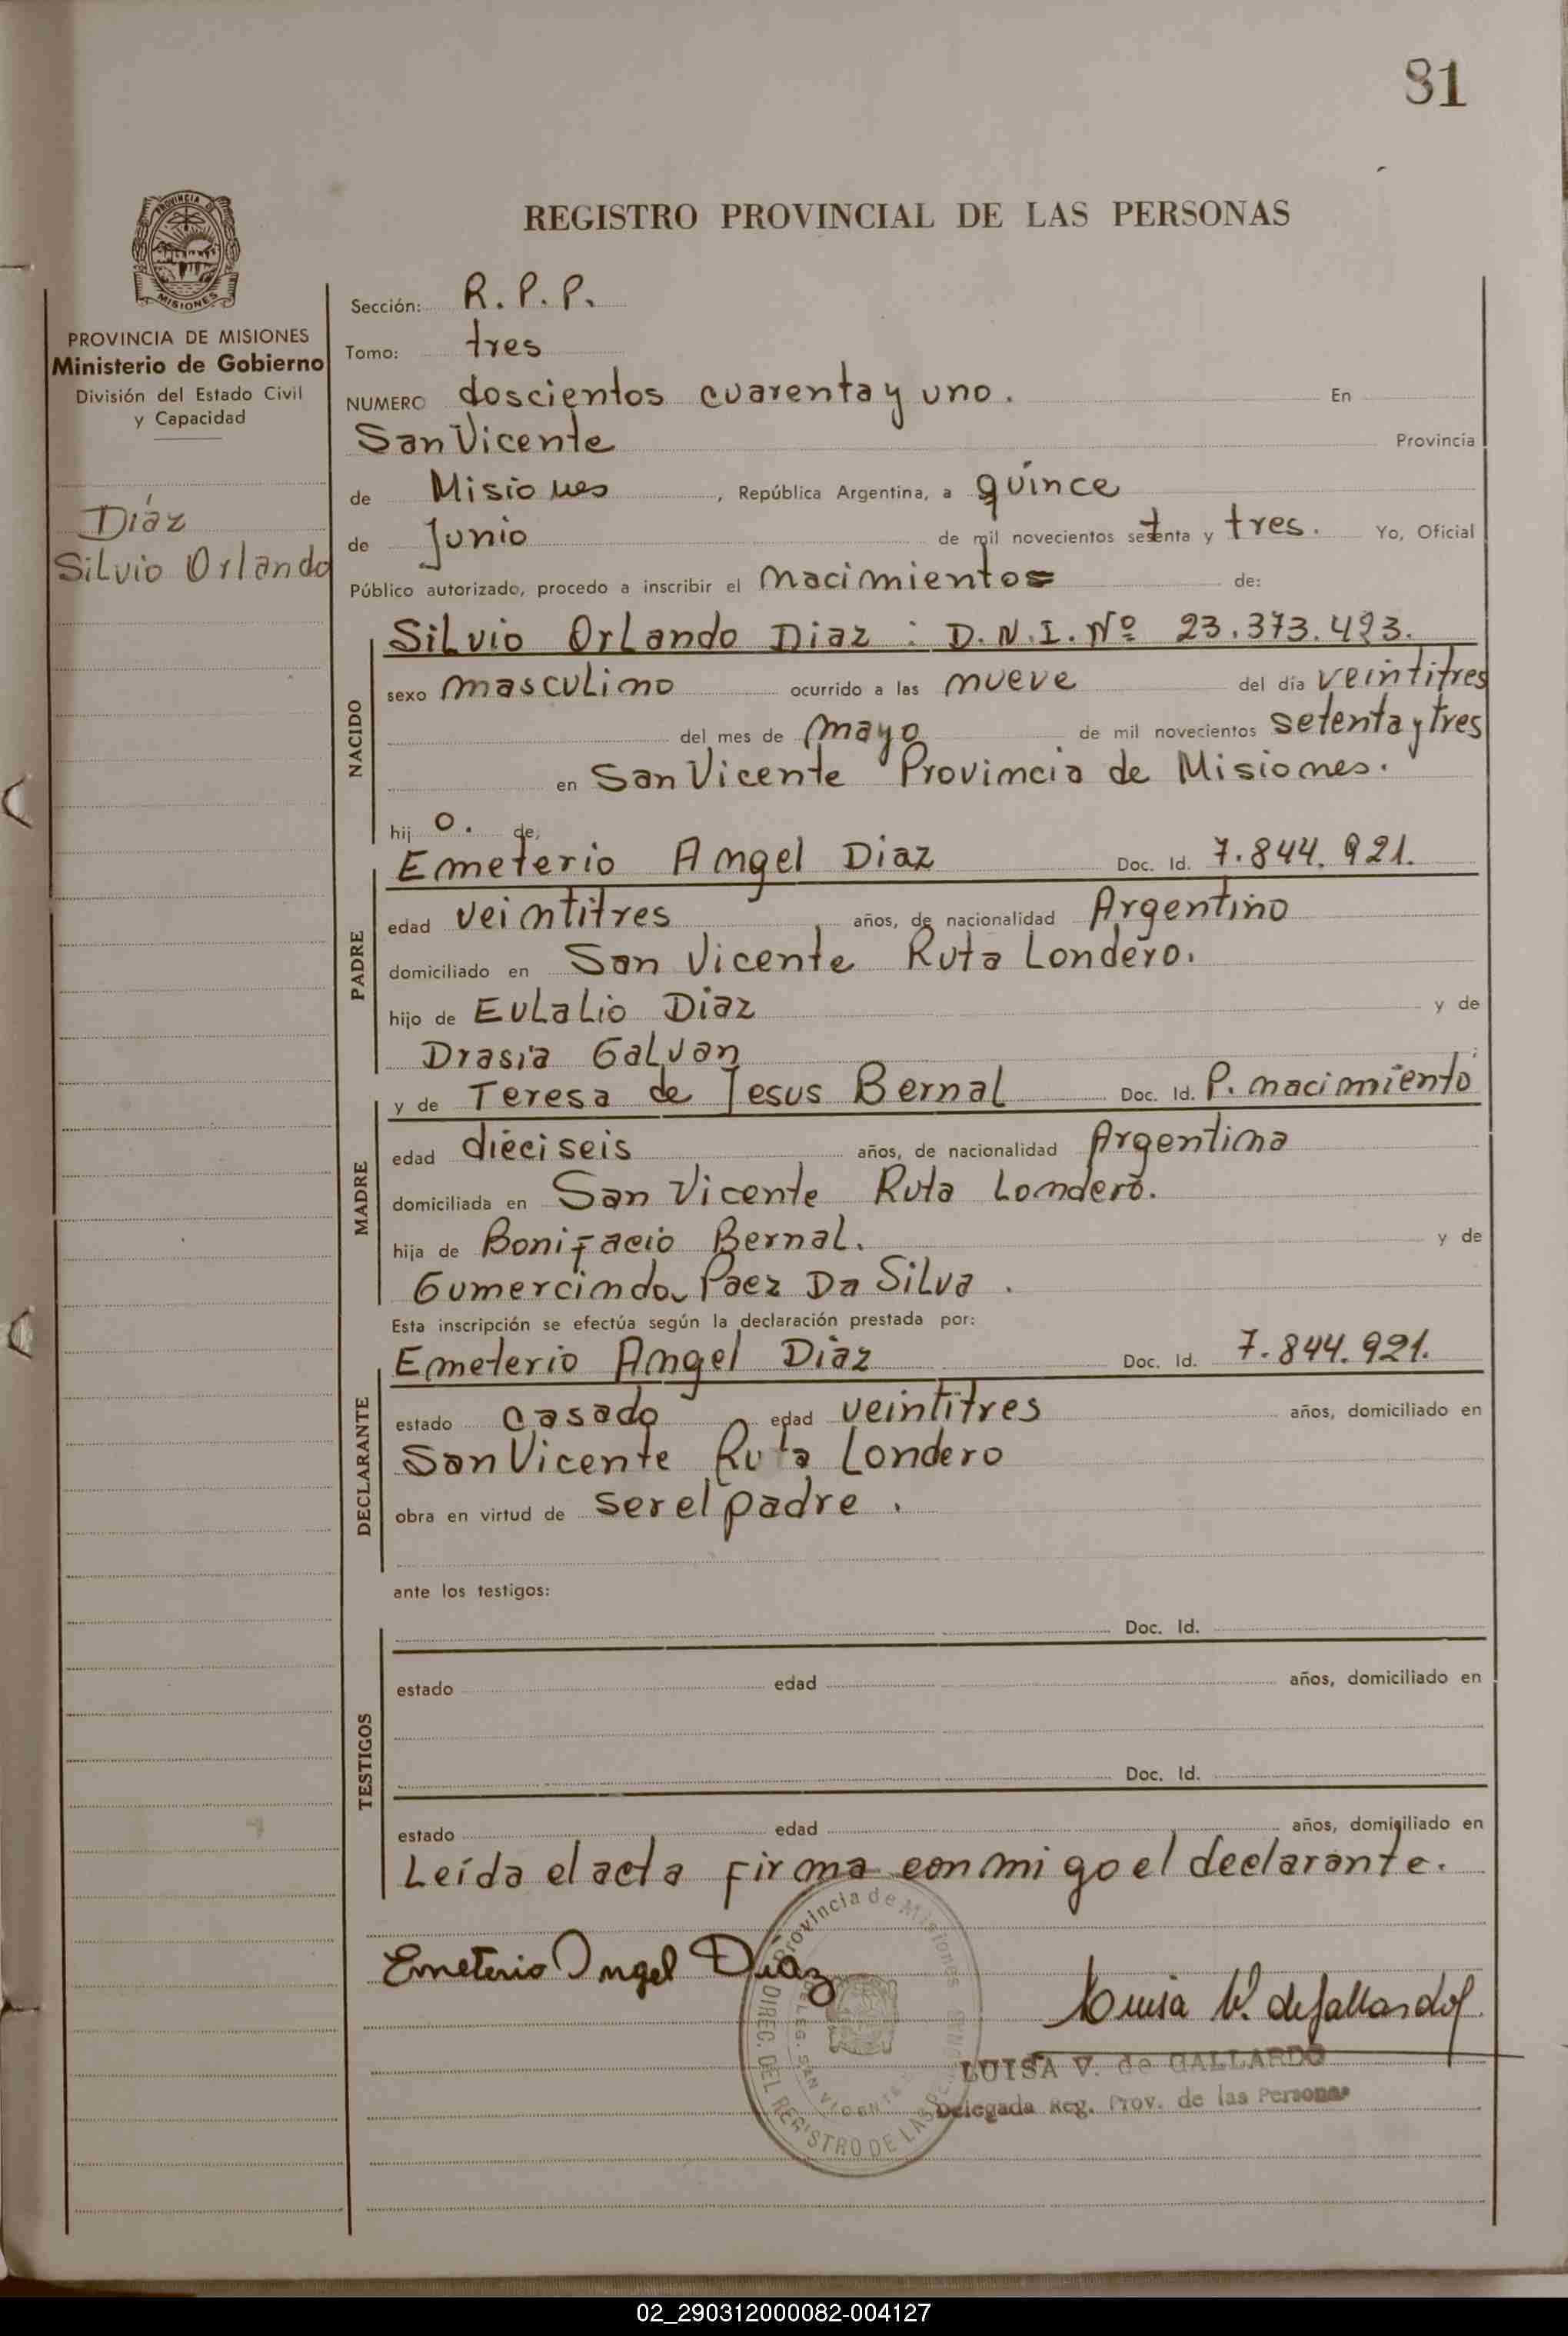 81
REGISTRO PROVINCIAL DE LAS PERSONAS
PROVINCIA DE MISIONES
Ministerio de Gobierno
División del Estado Civil
y Capacidad
Díaz
Silvio Orlando
Sección: R. P. P.
Tomo: tres
NUMERO doscientos cuarenta y uno. En
San Vicente Provincia
de Misiones, República Argentina, a quince
de Junio de mil novecientos setenta y tres. Yo, Oficial
Público autorizado, procedo a inscribir el nacimiento de:
NACIDO
Silvio Orlando Diaz : D.N.I. Nº 23.373.493.
sexo masculino ocurrido a las nueve del día veintitres
del mes de mayo de mil novecientos setenta y tres
en San Vicente Provincia de Misiones.
hij o. de:
PADRE
Emeterio Angel Diaz Doc. Id. 7.844.921.
edad veintitres años, de nacionalidad Argentino
domiciliado en San Vicente Ruta Londero.
hijo de Eulalio Diaz y de
Drasia Galvan
MADRE
y de Teresa de Jesus Bernal Doc. Id. P. nacimiento
edad dieciseis años, de nacionalidad Argentina
domiciliada en San Vicente Ruta Londero.
hija de Bonifacio Bernal. y de
Gumercinda Paez Da Silva.
Esta inscripción se efectúa según la declaración prestada por:
DECLARANTE
Emeterio Angel Diaz Doc. Id. 7.844.921.
estado casado edad veintitres años, domiciliado en
San Vicente Ruta Londero
obra en virtud de ser el padre.
ante los testigos:
TESTIGOS
Doc. Id.
estado edad años, domiciliado en
Doc. Id.
estado edad años, domiciliado en
Leída el acta firma conmigo el declarante.
Emeterio Angel Diaz
Luisa V. de Gallardo
Provincia de Misiones
DIREC. DEL REGISTRO DE LAS
DELEG. SAN VICENTE
LUISA V. de GALLARDO
Delegada Reg. Prov. de las Personas
02_290312000082-004127